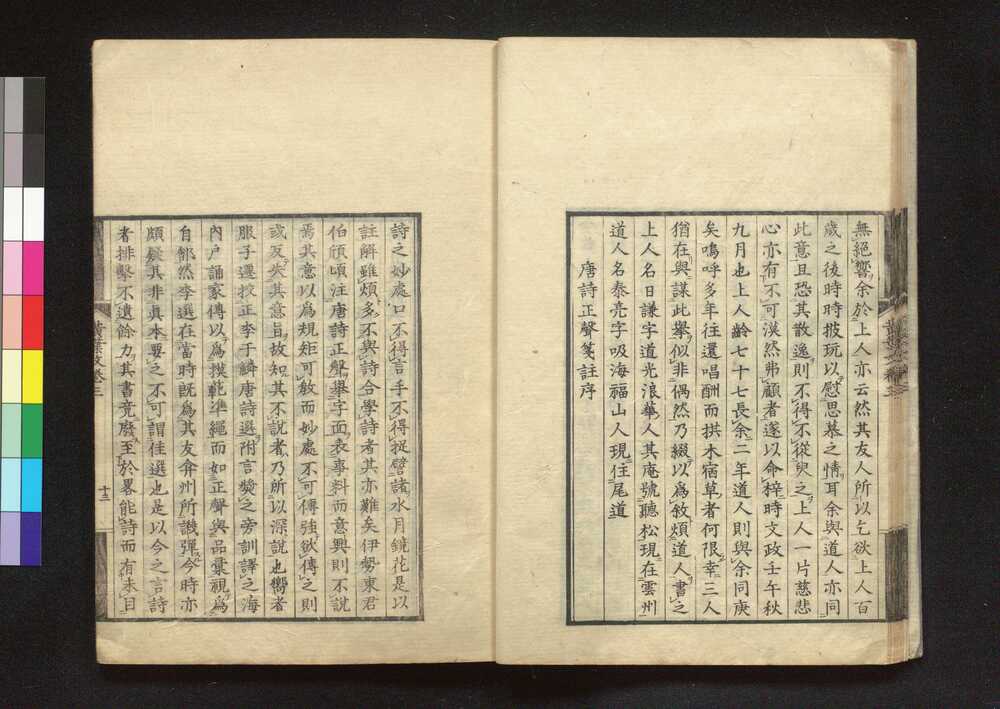 無絕響余於上人亦云然其友人所以乞欲上人百
歲之後時時披玩以慰思慕之情耳余與道人亦同
此意且恐其散逸則不得不從臾之上人一片慈悲
心亦有不可漠然弗顧者遂以命梓時文政壬午秋
九月也上人齡七十七長余二年道人則與余同庚
矣嗚呼多年往還唱酬而拱木宿草者何限幸三人
猶在與謀此舉似非偶然乃綴以爲敘煩道人書之
上人名日謙字道光浪華人其庵號聽松現在雲州
道人名泰亮字吸海福山人現住尾道
唐詩正聲箋註序
詩之妙處口不得言手不得捉譬諸水月鏡花是以
註解雖煩多不與詩合學詩者其亦難矣伊勢東君
伯頎頃注唐詩正聲舉字面表事料而意興則不說
焉其意以爲規矩可敎而妙處不可傳強欲傳之則
或反失其意旨故知其不說者乃所以深說也嚮者
服子遷挍正李于鱗唐詩選附言奬之旁訓譯之海
內戶誦家傳以爲模範準繩而如正聲與品彙視爲
自鄶然李選在當時既爲其友弇州所譏彈今時亦
頗疑其非眞本要之不可謂佳選也是以今之言詩
者排擊不遺餘力其書竟廢至於畧能詩而有未目
黃葉文卷三
十三